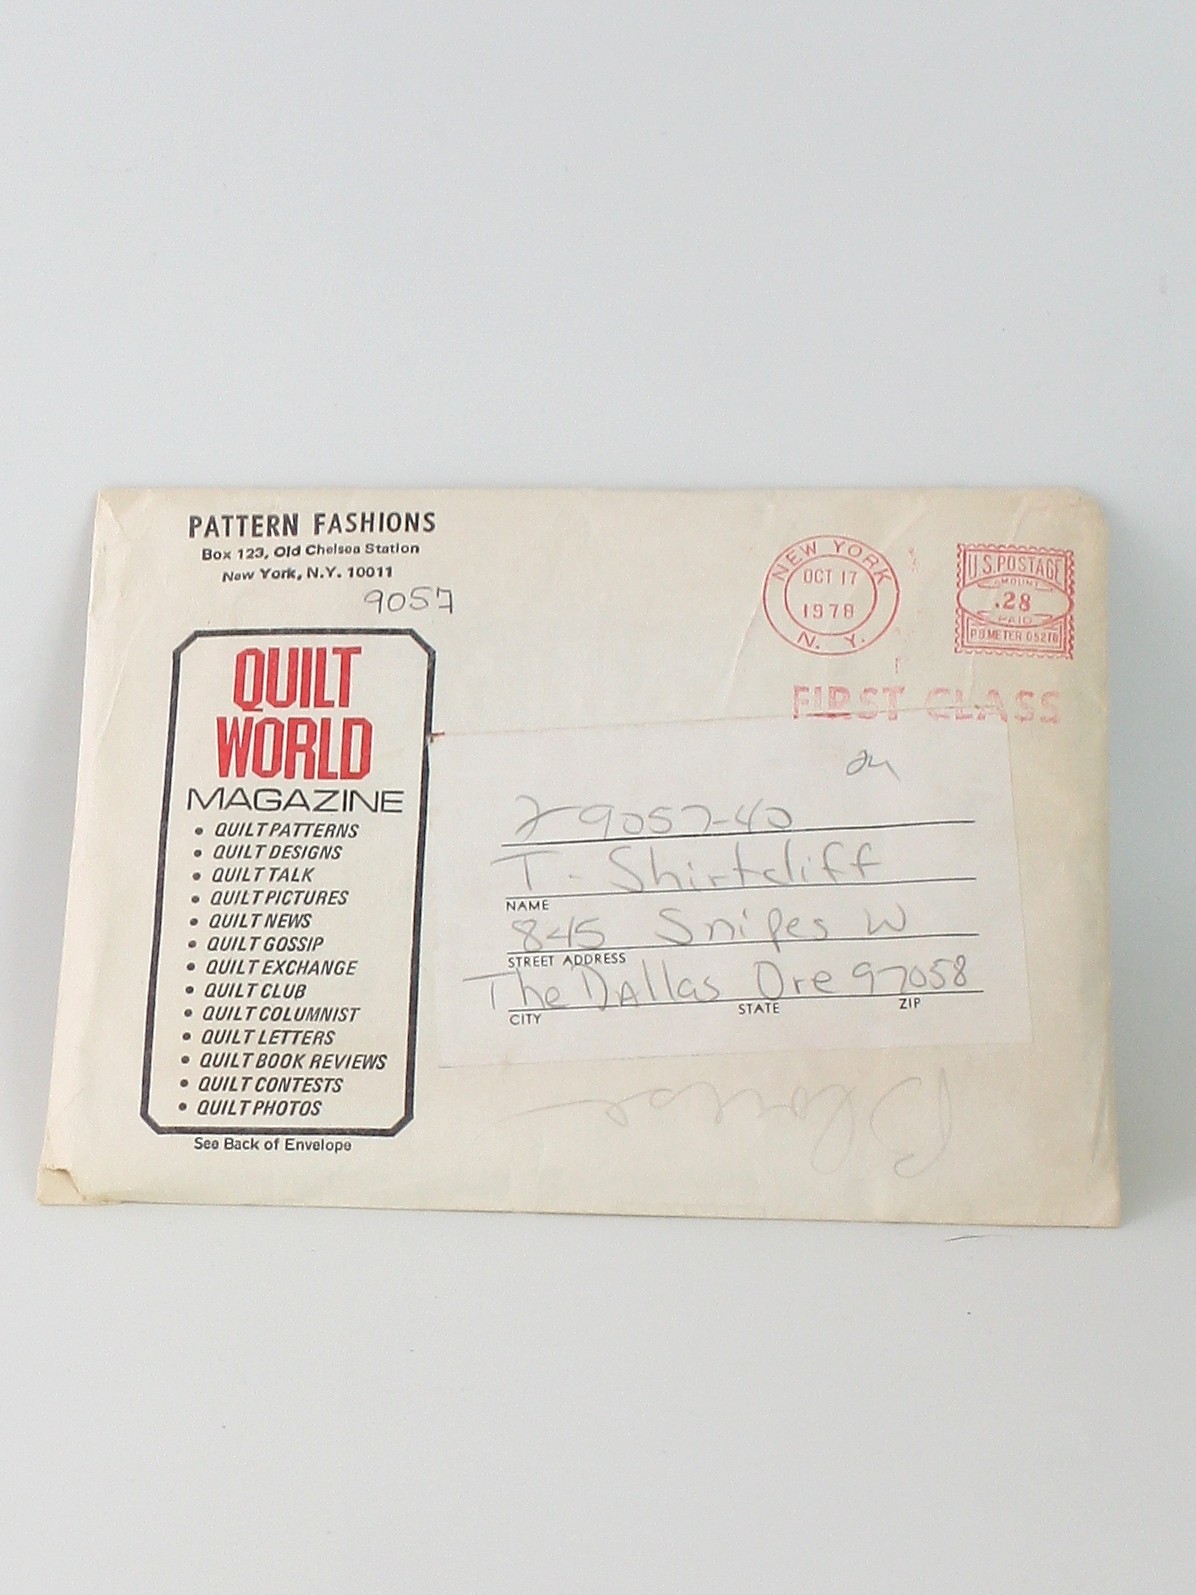 PATTERN FASHIONS
Box 123, Old Chelsea Station
New York, N.Y. 10011
9057
QUILT
WORLD
MAGAZINE
• QUILT PATTERNS
• QUILT DESIGNS
• QUILT TALK
• QUILT PICTURES
• QUILT NEWS
• QUILT GOSSIP
• QUILT EXCHANGE
• QUILT CLUB
• QUILT COLUMNIST
• QUILT LETTERS
• QUILT BOOK REVIEWS
• QUILT CONTESTS
• QUILT PHOTOS
See Back of Envelope
NEW YORK
OCT 17
1978
N. Y.
U.S. POSTAGE
AMOUNT
.28
PAID
P.B. METER 05218
FIRST CLASS
9057-40
T. Shirtcliff
NAME
845 Snipes W
STREET ADDRESS
The Dallas Ore 97058
CITY STATE ZIP